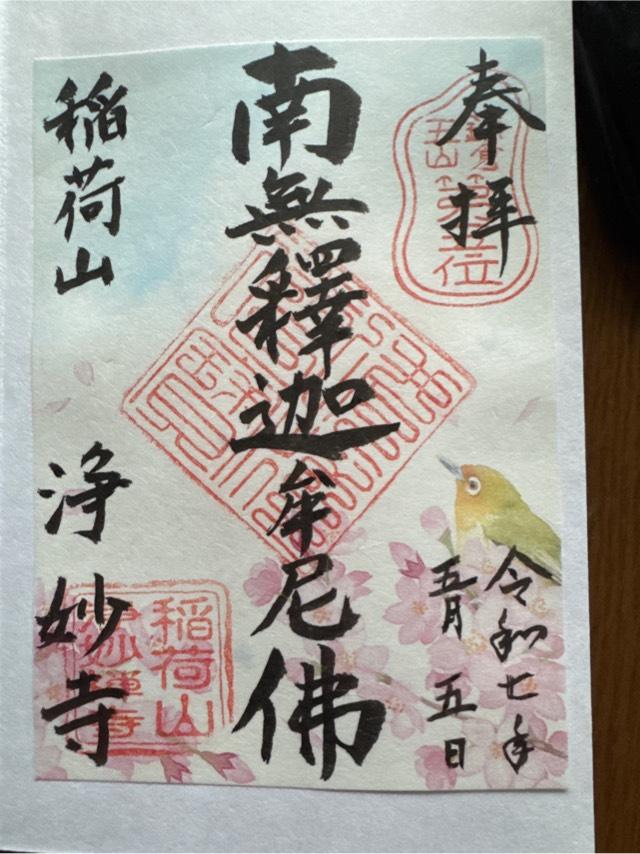 奉拝
鎌倉
五山
五位
令和七年
五月五日
南無釋迦牟尼佛
稲荷山
浄妙寺
稲荷山
浄妙禅寺